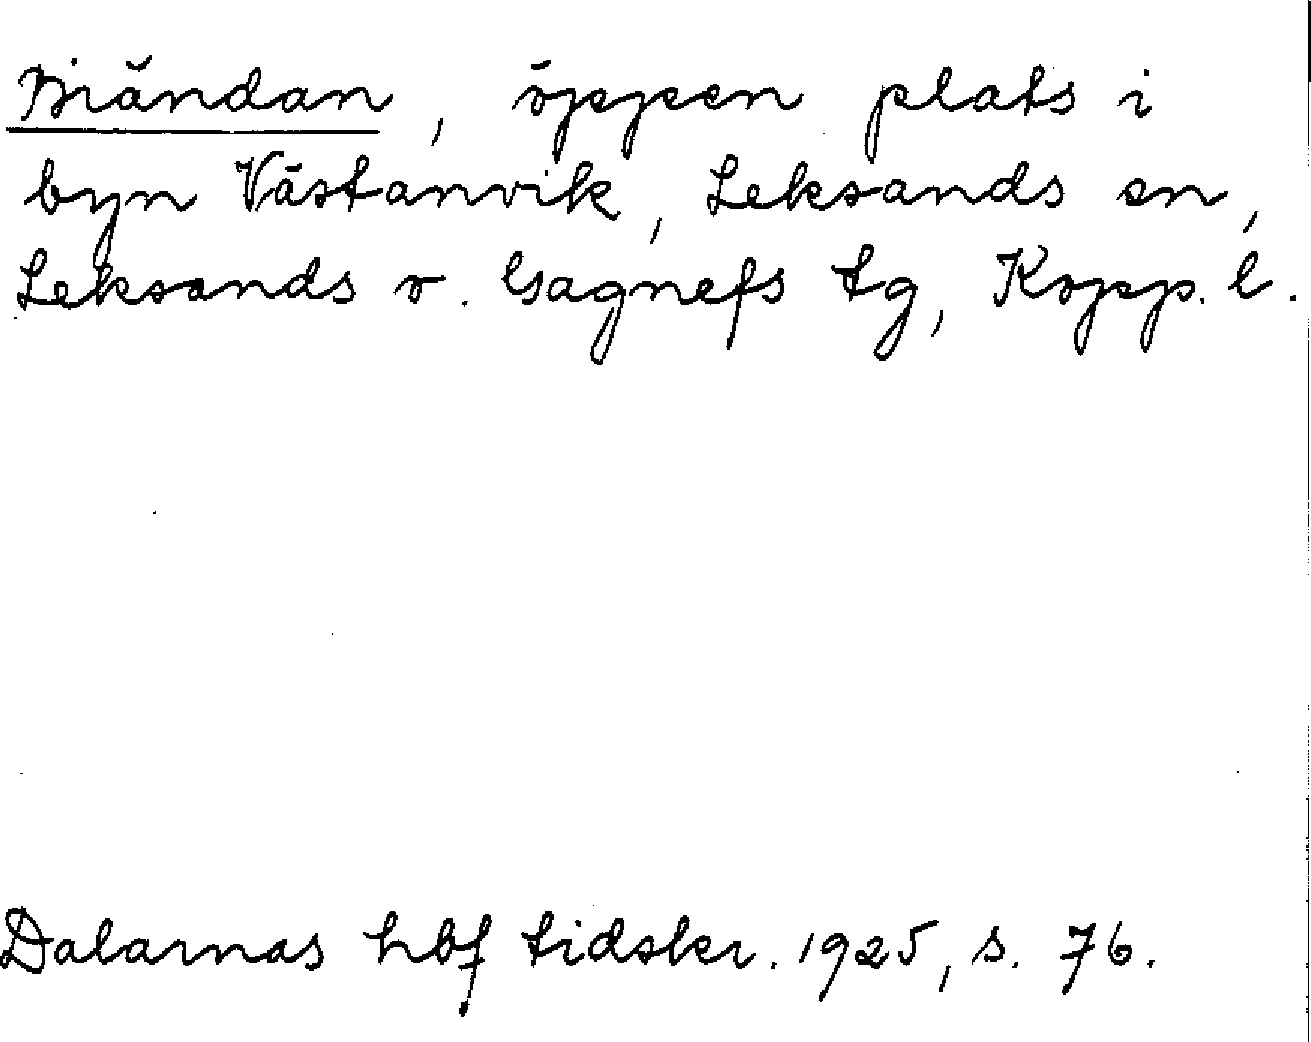 Brändan, öppen plats i
byn Västanvik, Leksands sn,
Leksands o. Gagnefs tg, Kopp. l.
Dalarnas hbf tidskr. 1925, s. 76.